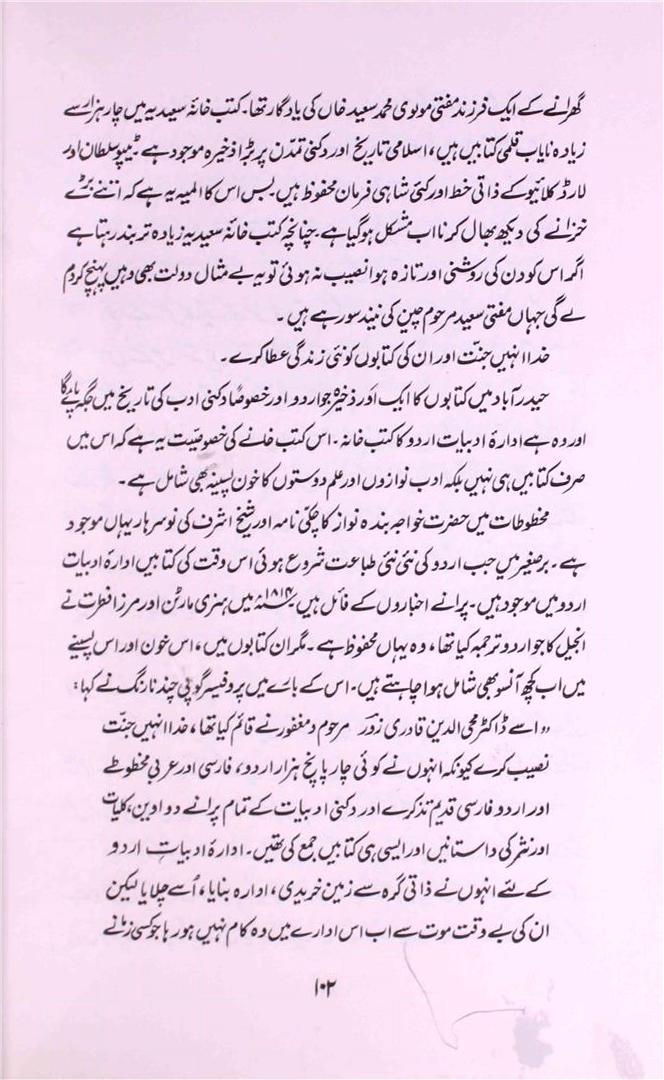 گھرانے کے ایک فرزند مفتی مولوی محمد سعید خاں کی یادگار تھا۔ کتب خانۂ سعیدیہ میں چار ہزار سے
زیادہ نایاب قلمی کتابیں ہیں، اسلامی تاریخ اور دکنی تمدن پر بڑا ذخیرہ موجود ہے ٹیپو سلطان اور
لارڈ کلائیو کے ذاتی خط اور کئی شاہی فرمان محفوظ ہیں بس اس کا المیہ یہ ہے کہ اتنے بڑے
خزانے کی دیکھ بھال کرنا اب مشکل ہوگیا ہے۔ چنانچہ کتب خانۂ سعیدیہ زیادہ تر بند رہتا ہے
اگر اس کو دن کی روشنی اور تازہ ہوا نصیب نہ ہوئی تو یہ بے مثال دولت بھی وہیں پہنچ کر دم
لے گی جہاں مفتی سعید مرحوم چین کی نیند سو رہے ہیں۔
خدا انہیں جنت اور ان کی کتابوں کو نئی زندگی عطا کرے۔
حیدرآباد میں کتابوں کا ایک اور ذخیرہ جو اردو اور خصوصاً دکنی ادب کی تاریخ میں جگہ پائے گا
اور وہ ہے ادارۂ ادبیات اردو کا کتب خانہ۔ اس کتب خانے کی خصوصیت یہ ہے کہ اس میں
صرف کتابیں ہی نہیں بلکہ ادب نوازوں اور علم دوستوں کا خون پسینہ بھی شامل ہے۔
مخطوطات میں حضرت خواجہ بندہ نواز کا چکی نامہ اور شیخ اشرف کی نوسرہار یہاں موجود
ہے۔ برصغیر میں جب اردو کی نئی نئی طباعت شروع ہوئی اس وقت کی کتابیں ادارۂ ادبیات
اردو میں موجود ہیں۔ پرانے اخباروں کے فائل ہیں ۱۸۱۴ء میں ہنری مارٹن اور مرزا فطرت نے
انجیل کا جو اردو ترجمہ کیا تھا، وہ یہاں محفوظ ہے۔ مگر ان کتابوں میں، اس خون اور اس پسینے
میں اب کچھ آنسو بھی شامل ہوا چاہتے ہیں۔ اس کے بارے میں پروفیسر گوپی چند نارنگ نے کہا:
"اسے ڈاکٹر محی الدین قادری زورؔ مرحوم و مغفور نے قائم کیا تھا، خدا انہیں جنت
نصیب کرے کیونکہ انہوں نے کوئی چار پانچ ہزار اردو، فارسی اور عربی مخطوطے
اور اردو فارسی قدیم تذکرے اور دکنی ادبیات کے تمام پرانے دواوین، کلیات
اور نثر کی داستانیں اور ایسی ہی کتابیں جمع کی تھیں۔ ادارۂ ادبیاتِ اردو
کے لئے انہوں نے ذاتی گرہ سے زمین خریدی، ادارہ بنایا، اُسے چلایا لیکن
ان کی بے وقت موت سے اب اس ادارے میں وہ کام نہیں ہو رہا جو کسی زمانے
۱۰۲